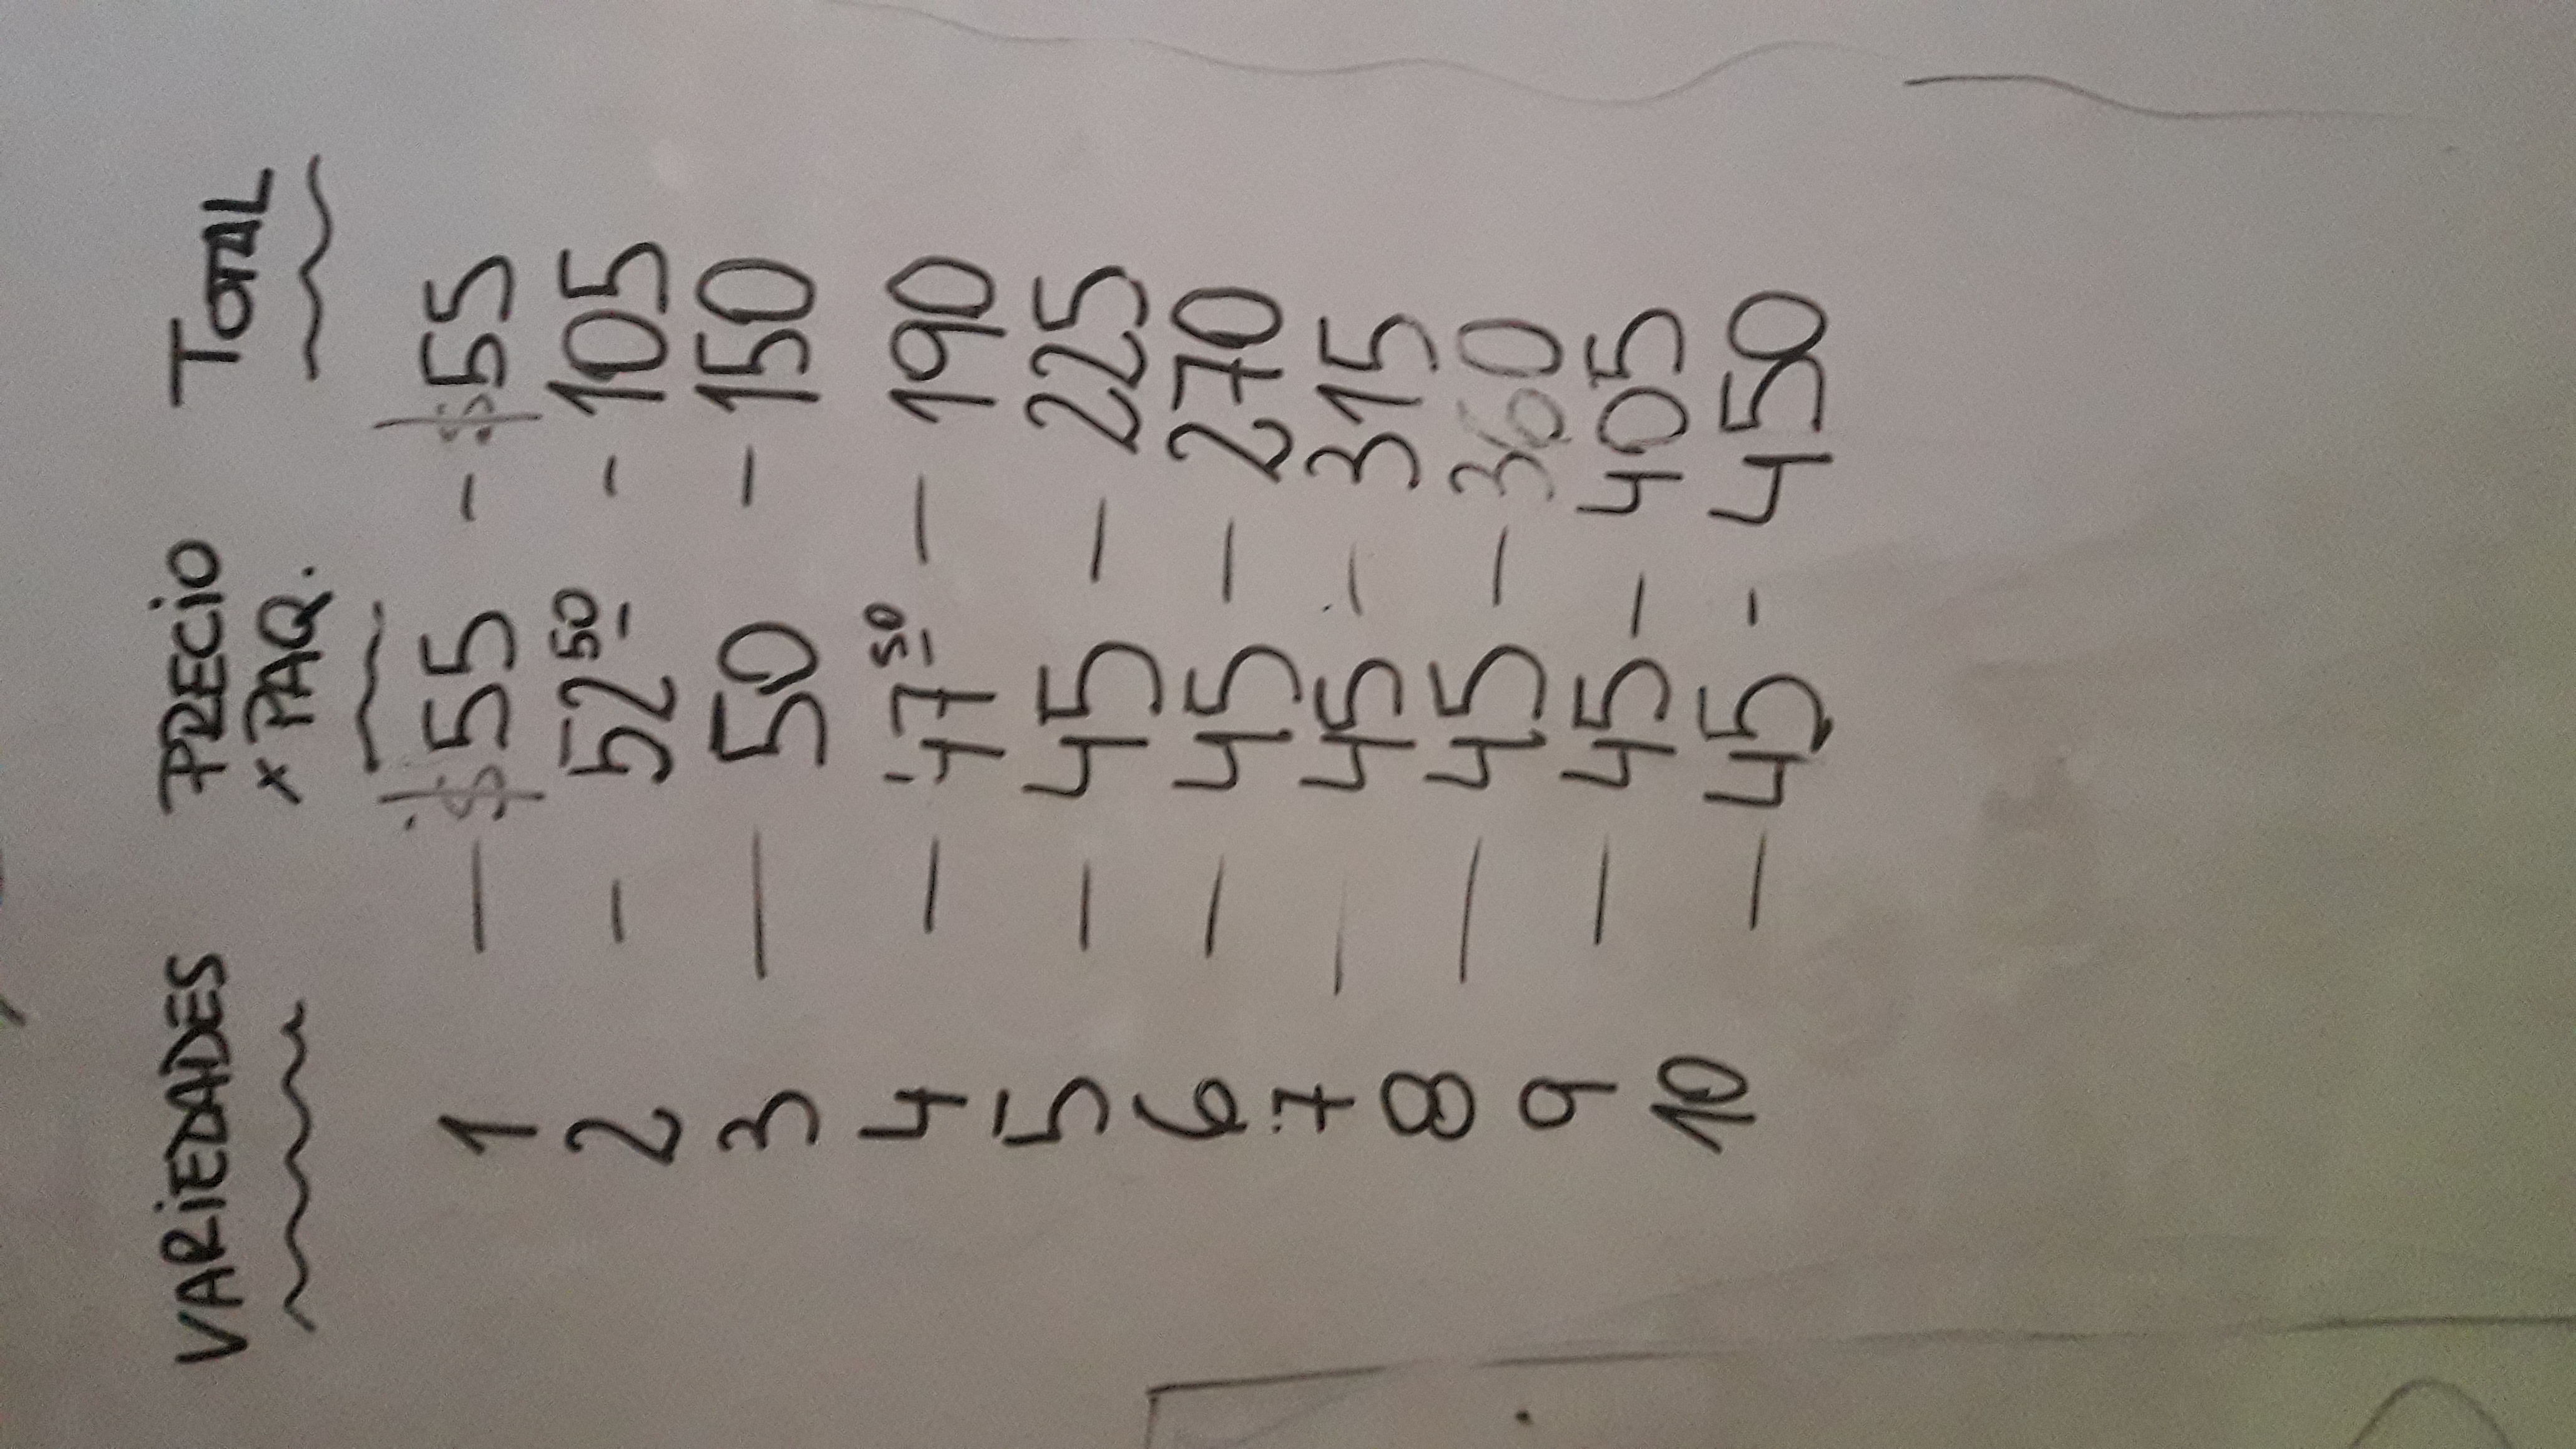 VARIEDADES PRECIO TOTAL
x PAQ.
1 — $55 - $55
2 - 52⁵⁰ - 105
3 — 50 - 150
4 — 47⁵⁰ — 190
5 — 45 — 225
6 — 45 — 270
7 — 45 - 315
8 — 45 — 360
9 — 45 — 405
10 — 45 - 450